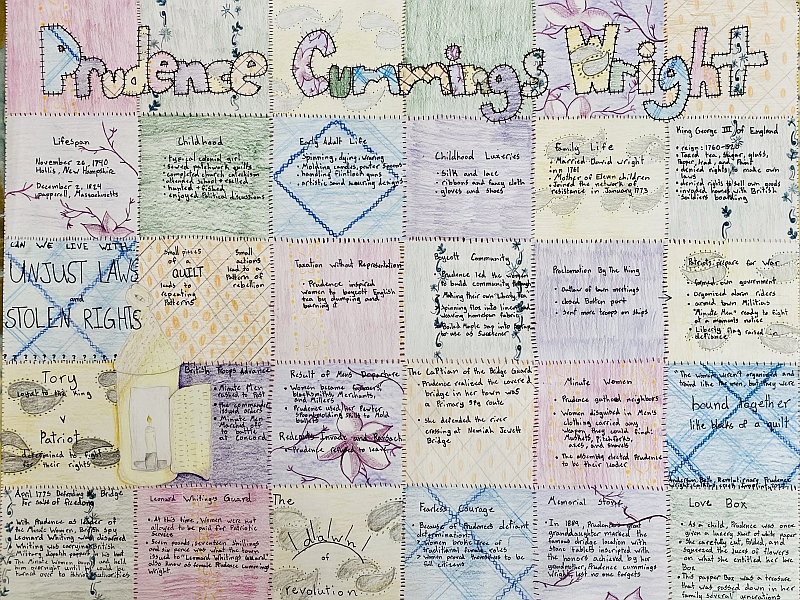 Prudence Cummings Wright
Lifespan
November 26, 1740
Hollis, New Hampshire
December 2, 1824
pepperell, Massachusetts
Childhood
• Typical colonial girl
• sewed patchwork quilts
• completed church catechism
• attended school + skilled
• hunted + fished
• enjoyed Political discussions
Early Adult Life
• Spinning, dying, weaving
• Molding candles, pewter spoons
• handling flintlock guns
• artistic sand weaving designs
Childhood Luxeries
• Silk and lace
• ribbons and fancy cloth
• gloves and shoes
Family Life
• Married David Wright
in 1761
• Mother of Eleven children
• Joined the network of
resistance in January 1773
King George III of England
• reign: 1760-1820
• Taxed tea, sugar, glass,
Paper, lead, and Paint
• denied rights to make own
laws
• denied rights to sell own goods
• invaded homes with British
soldiers boarding
CAN WE LIVE WITH
UNJUST LAWS
and
STOLEN RIGHTS
? ? ? ? ? ? ? ?
Small pieces
of a
QUILT
leads to
repeating
Patterns
Small
actions
lead to a
Pattern of
rebellion
Taxation without Representation
• Prudence inspired
women to boycott English
tea by dumping and
burning it
Boycott Community
Prudence led the women
to build community
Making their own "Liberty Tea"
Spinning flax into linen
weaving homespun fabric
Boiled Maple sap into
for use as Sweetener
Proclamation By The King
• Outlaw of own meetings
• closed Boston port
• Sent more troops on ships
Patriots prepare for War
• formed own government
• Organized alarm riders
• armed town Militias
• "Minute Men" ready to fight
at a moments notice
• Liberty flag raised in
defiance
Tory
Loyal to the King
Patriot
determined to fight
for their rights
British Troops Advance
• Minute Men
rushed to Post
• The commander
issued orders
• Minute Men
Marched off
to battle
at Concord
Result of Men's Departure
• Women became Farmers,
blacksmiths, Merchants,
and Millers
• Prudence used her Pewter
spoonmolding skills to Mold
bullets
Redcoats Invade and Ransack
• Prudence refused to leave
The Captian of the Bridge Guard
• Prudence realized the covered
bridge in her town was
a Primary Spy route
• she defended the river
crossing at Nemiah Jewett
Bridge
Minute Women
• Prudence gathered neighbors
• Women disguised in Men's
clothing carried any
weapon they could find:
Muskets, Pitchforks,
axes, and shovels
• The assembly elected Prudence
to be their leader
• The women weren't organized and
trained like the men, but they were
bound together
like blocks of a quilt
April 1775 Defending the Bridge
for sake of freedom
With Prudence as leader of
the Minute Women, British spy
Leonard Whiting was disarmed
Whiting was carrying British
The Minute Women
him overnight until he could be
turned over to authorities
Leonard Whitings Guard
• At this time, Women were not
allowed to be paid for Patriotic
Service
• Seven pounds, seventeen shillings
and six pence was what the town
issued to "Leonard Whitings Guard"
also known as female Prudence Cummings
Wright
The
of
revolution
Fearless Courage
Because of Prudences defiant
determination:
• Women broke free of
traditional female roles
• Women proved themselves to be
full citizens
Memorial Stone
• In 1889, Prudences great
granddaughter marked the
famous bridge location with
stone tablets inscripted with
the honors achieved by her
grandmother, Prudence Cummings
Wright, lest no one forgets
Love Box
• As a child, Prudence was once
given a heavy sheet of white paper
• She carefully cut, folded, and
squeezed the juices of flowers
on what she entitled her Love
Box
• This papper Box was a treasure
that was passed down in her
family several generations